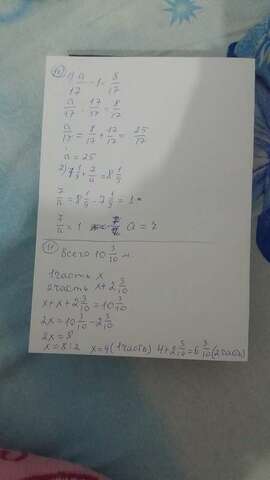 10) 1) a/17 - 1 = 8/17
a/17 - 17/17 = 8/17
a/17 = 8/17 + 17/17 = 25/17
a = 25
2) 7 1/5 + 7/a = 8 1/5
7/a = 8 1/5 - 7 1/5 = 1
7/a = 1 a = 7
11) Всего 10 3/10 м.
1 часть x
2 часть x + 2 3/10
x + x + 2 3/10 = 10 3/10
2x = 10 3/10 - 2 3/10
2x = 8
x = 8:2 x = 4 (1 часть) 4 + 2 3/10 = 6 3/10 (2 часть)